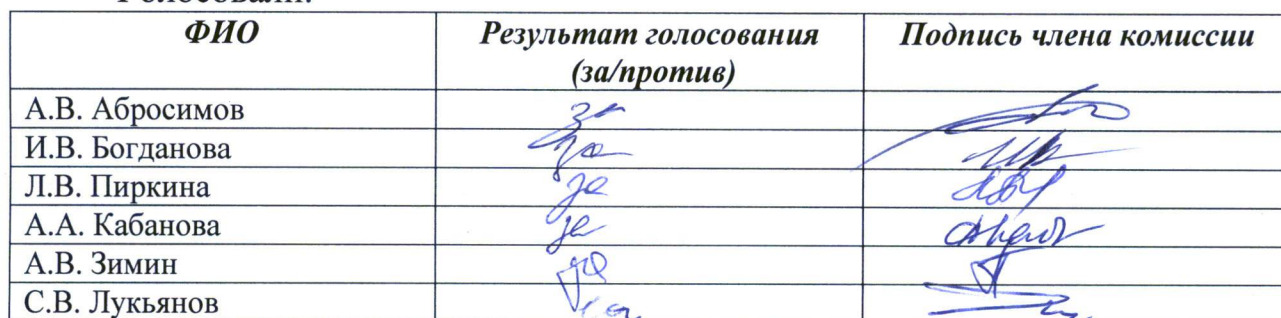 Голосовали:
ФИО Результат голосования Подпись члена комиссии
(за/против)
А.В. Абросимов за
И.В. Богданова за
Л.В. Пиркина за
А.А. Кабанова за
А.В. Зимин за
С.В. Лукьянов за